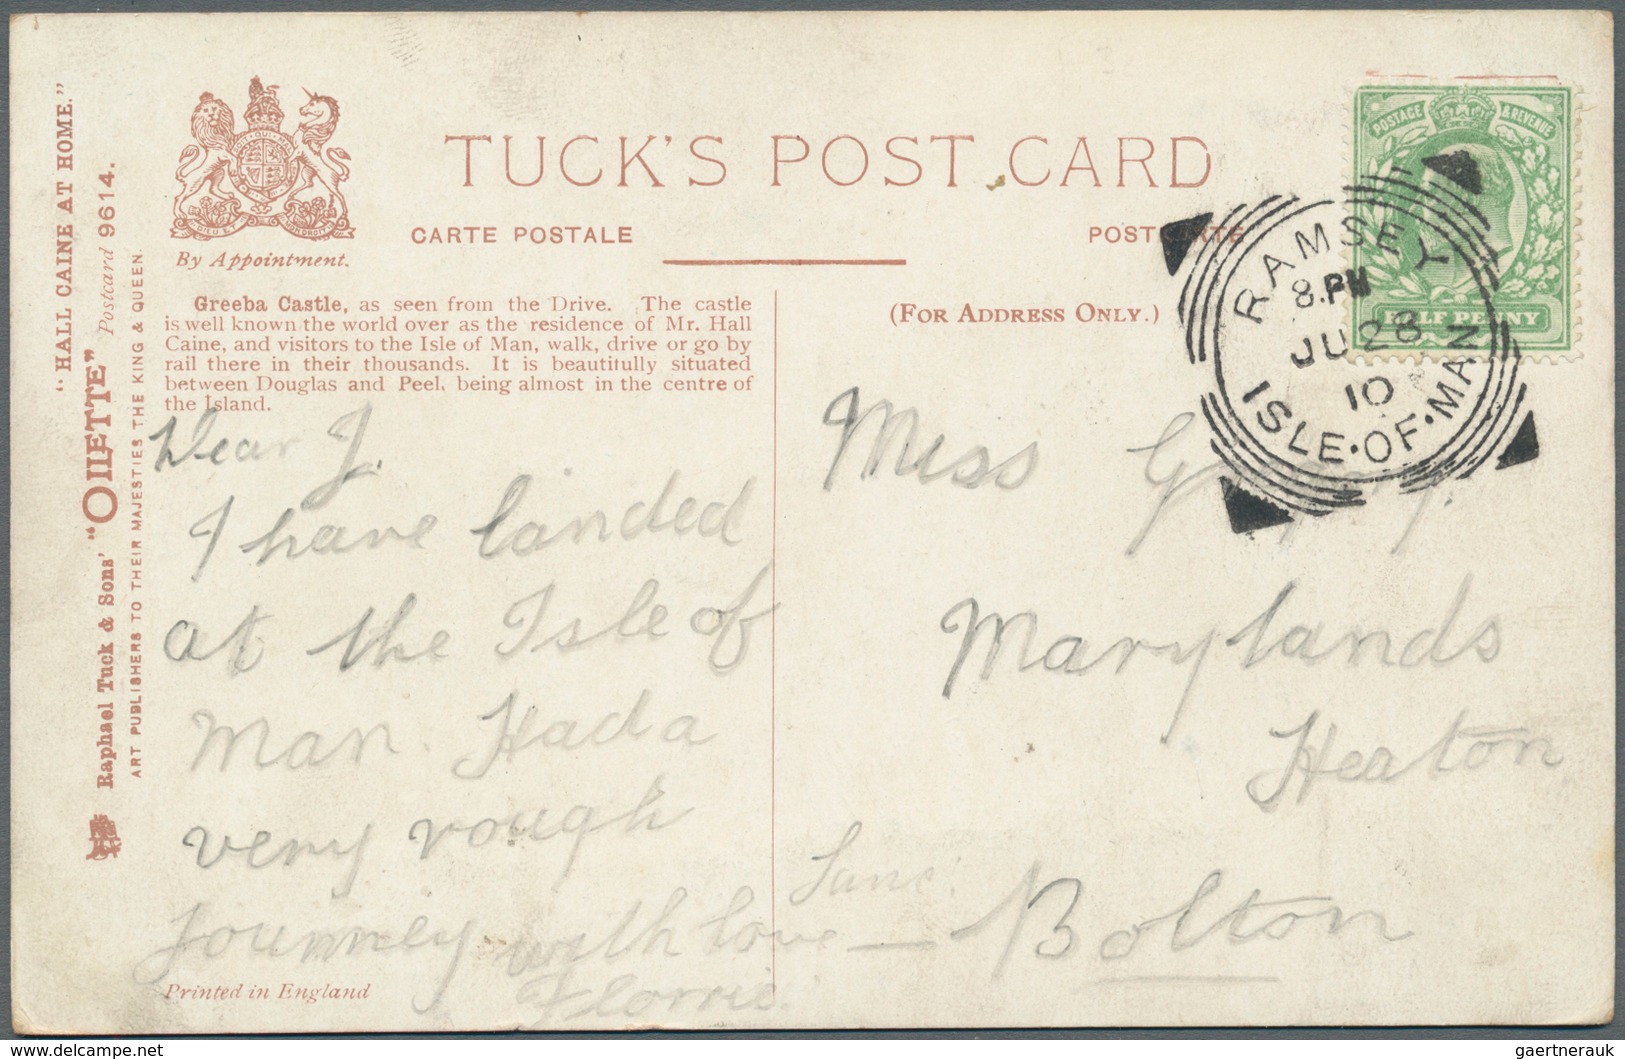 "HALL CAINE AT HOME."
Raphael Tuck & Sons' "OILETTE" Postcard 9614.
ART PUBLISHERS TO THEIR MAJESTIES THE KING & QUEEN.
DIEU ET MON DROIT
By Appointment.
TUCK'S POST CARD
CARTE POSTALE
POSTKARTE
Greeba Castle, as seen from the Drive. The castle
is well known the world over as the residence of Mr. Hall
Caine, and visitors to the Isle of Man, walk, drive or go by
rail there in their thousands. It is beautitully situated
between Douglas and Peel, being almost in the centre of
the Island.
(FOR ADDRESS ONLY.)
POSTAGE & REVENUE
HALF PENNY
RAMSEY
8.PM
JU 28
10
ISLE·OF·MAN
Dear J.
I have landed
at the Isle of
Man. Had a
very rough
journey with love
Florris.
Miss
Marylands
Heaton
Lane.
Bolton
Printed in England
delcampe.net
gaertnerauk